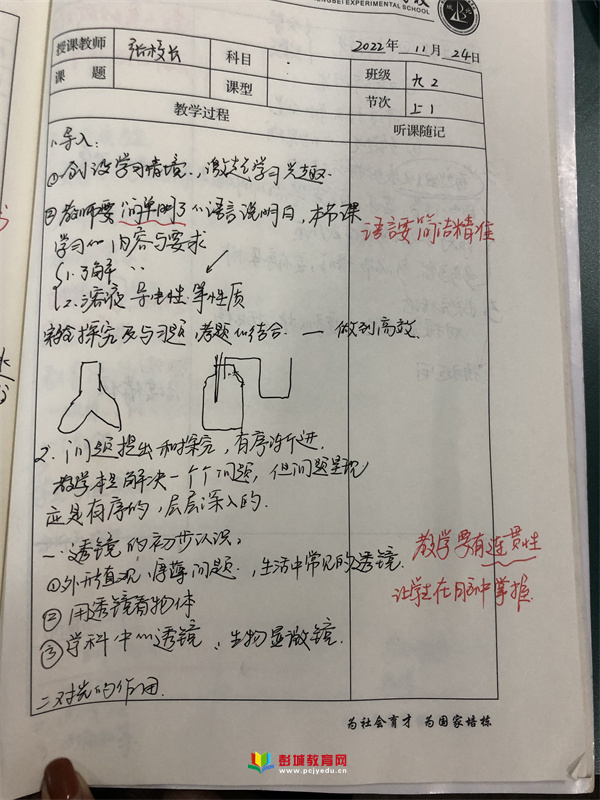 EXPERIMENTAL SCHOOL
授课教师 张校长 科目 2022年 11月 24日
课题 课型 班级 九2
节次 上1
教学过程 听课随记
1、导入:
①创设学习情境、激起学习兴趣.
②教师要简单明了的语言说明白,本节课 语言要简洁精准
学习的内容与要求
1.了解
2.溶液导电性.等性质
实验探究及与习题,考题的结合. — 做到高效.
2、问题提出和探究,有序渐进.
教学本是解决一个个问题,但问题呈现
应是有序的,层层深入的.
一、透镜的初步认识;
①外形直观、厚薄问题、生活中常见的透镜. 教学要有连贯性
②用透镜看物体 让学生在 中掌握.
③学科中的透镜、生物显微镜.
二对光的作用.
为社会育才 为国家培栋
彭城教育网
www.pcjyedu.cn